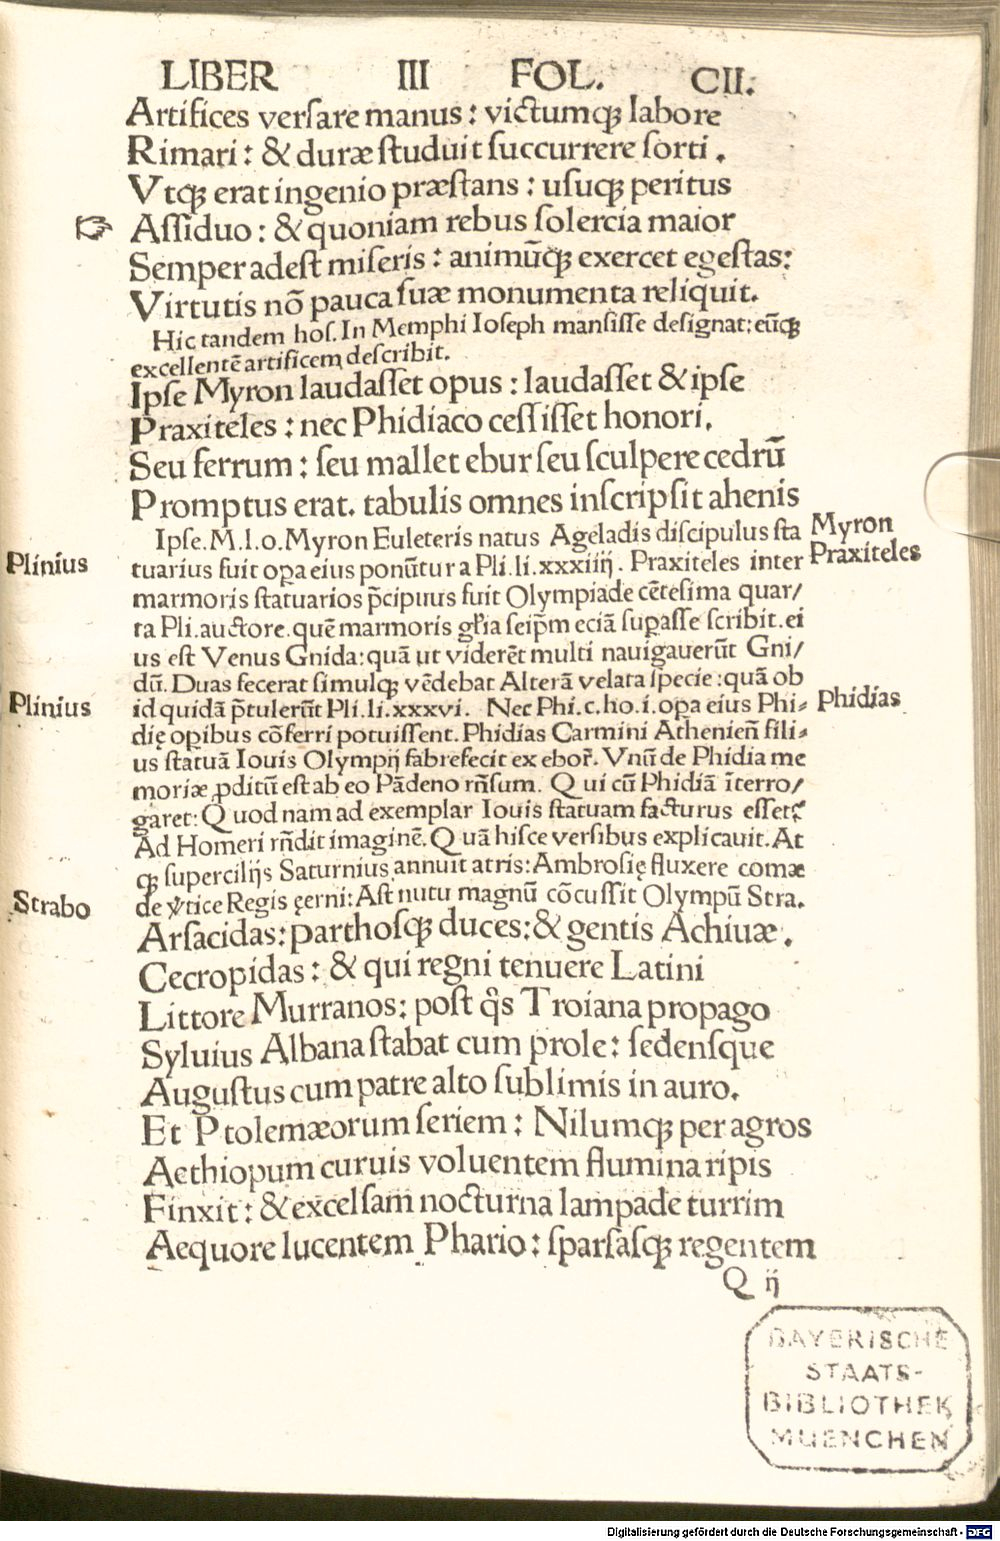 LIBER III FOL. CII.
Artifices verſare manus: victumqꝫ labore
Rimari: & duræ ſtuduit ſuccurrere ſorti.
Vtqꝫ erat ingenio præſtans: uſuqꝫ peritus
☞ Aſſiduo: & quoniam rebus ſolercia maior
Semper adeſt miſeris: animūqꝫ exercet egeſtas:
Virtutis nō pauca ſuæ monumenta reliquit.
Hic tandem hoſ. In Memphi Ioſeph manſiſſe deſignat: eūqꝫ
excellentē artificem deſcribit.
Ipſe Myron laudaſſet opus: laudaſſet & ipſe
Praxiteles: nec Phidiaco ceſſiſſet honori.
Seu ferrum: ſeu mallet ebur ſeu ſculpere cedrū
Promptus erat. tabulis omnes inſcripſit ahenis
Ipſe. M. l. o. Myron Euleteris natus Ageladis diſcipulus ſta
Myron
Plinius
tuarius fuit oꝑa eius ponūtur a Pli. li. xxxiiij. Praxiteles inter
Praxiteles
marmoris ſtatuarios p̄cipuus fuit Olympiade cēteſima quar/
ta Pli. auctore. quē marmoris gl̄ia ſeip̄m eciā ſuꝑaſſe ſcribit. ei
us eſt Venus Gnida: quā ut viderēt multi nauigauerūt Gni/
dū. Duas fecerat ſimulqꝫ vēdebat Alterā velata ſpecie: quā ob
Plinius
id quidā p̄tulerūt Pli. li. xxxvi. Nec Phi. c. ho. i. oꝑa eius Phi⸗
Phidias
dię oꝑibus cōferri potuiſſent. Phidias Carmini Athenieñ fili⸗
us ſtatuā Iouis Olympij fabrefecit ex eboꝛ̄. Vnū de Phidia me
moriæ ꝓditū eſt ab eo Pādeno rñſum. Qui cū Phidiā īterro/
garet: Quod nam ad exemplar Iouis ſtatuam facturus eſſet?
Ad Homeri rñdit imaginē. Quā hiſce verſibus explicauit. At
qꝫ ſupercilijs Saturnius annuit atris: Ambroſię fluxere comæ
Strabo
de v̄tice Regis ęerni: Aſt nutu magnū cōcuſſit Olympū Stra.
Arſacidas: parthoſqꝫ duces: & gentis Achiuæ.
Cecropidas: & qui regni tenuere Latini
Littore Murranos: poſt q̄s Troiana propago
Syluius Albana ſtabat cum prole: ſedenſque
Auguſtus cum patre alto ſublimis in auro.
Et Ptolemæorum ſeriem: Nilumqꝫ per agros
Aethiopum curuis voluentem flumina ripis
Finxit: & excelſam nocturna lampade turrim
Aequore lucentem Phario: ſparſaſqꝫ regentem
Q ij
BAYERISCHE
STAATS-
BIBLIOTHEK
MUENCHEN
Digitalisierung gefördert durch die Deutsche Forschungsgemeinschaft - DFG